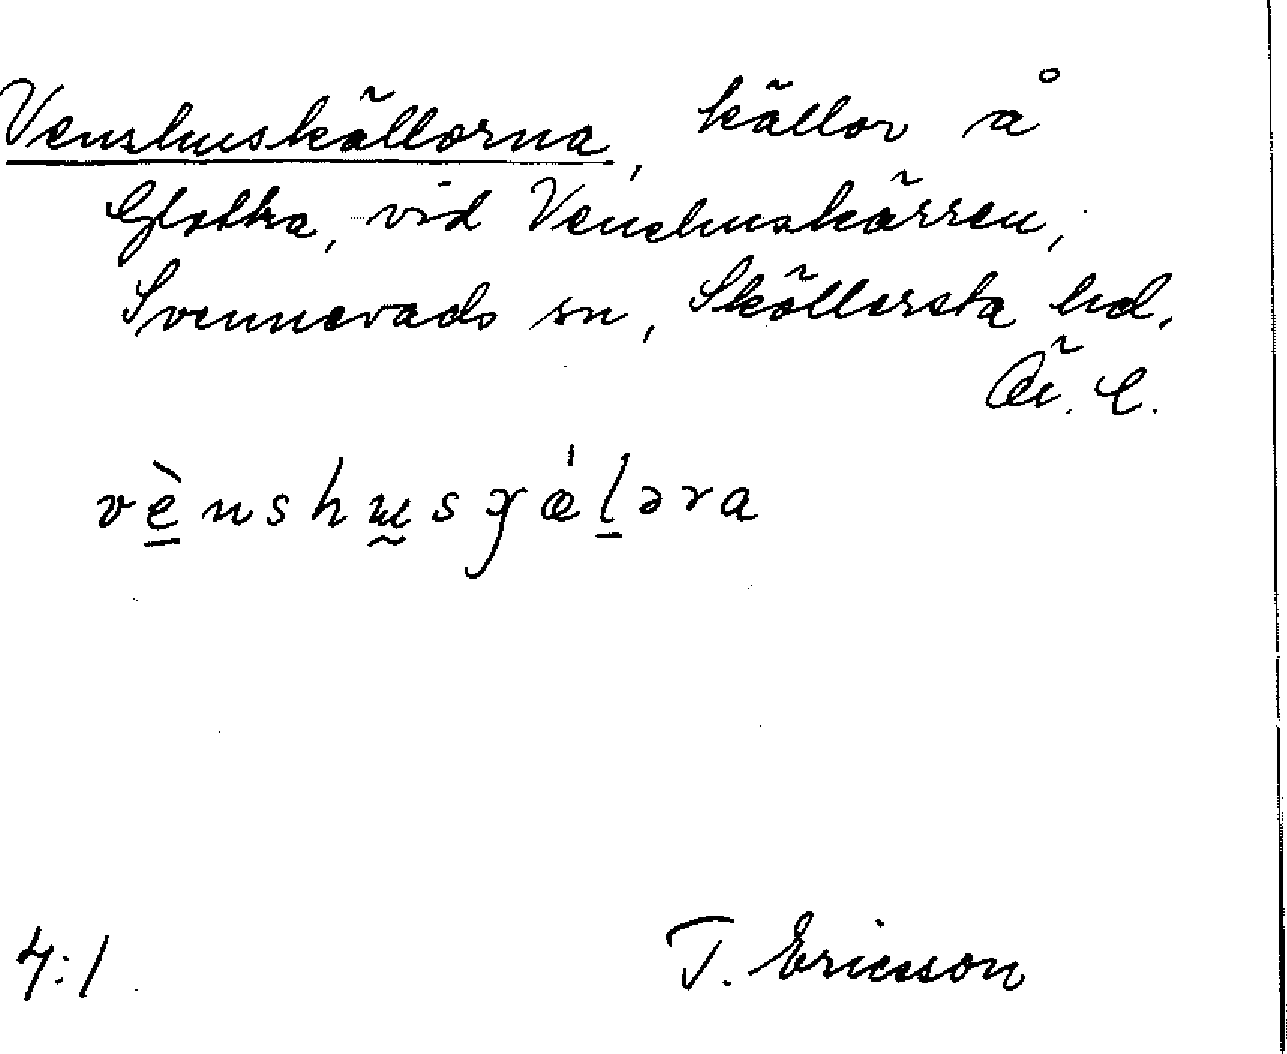 Venshuskällorna, källor å
Glottra, vid Venshuskärren,
Svennevads sn, Sköllersta hd.
Ör. l.
vènshusɣǽlǝra
4:1 T. Ericsson